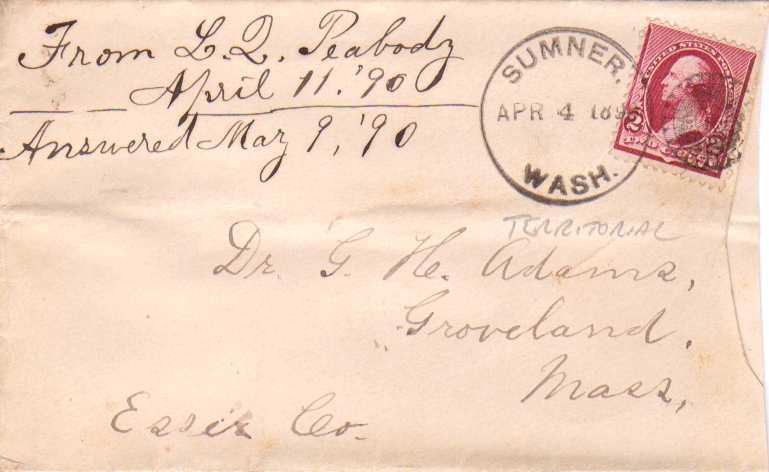 From L. Q. Peabody
April 11. '90
Answered May 9, '90
SUMNER.
APR 4 189
WASH.
UNITED STATES POSTAGE
2 2
TWO CENTS
TERRITORIAL
Dr. G. H. Adams,
Groveland,
Mass,
Essex Co.